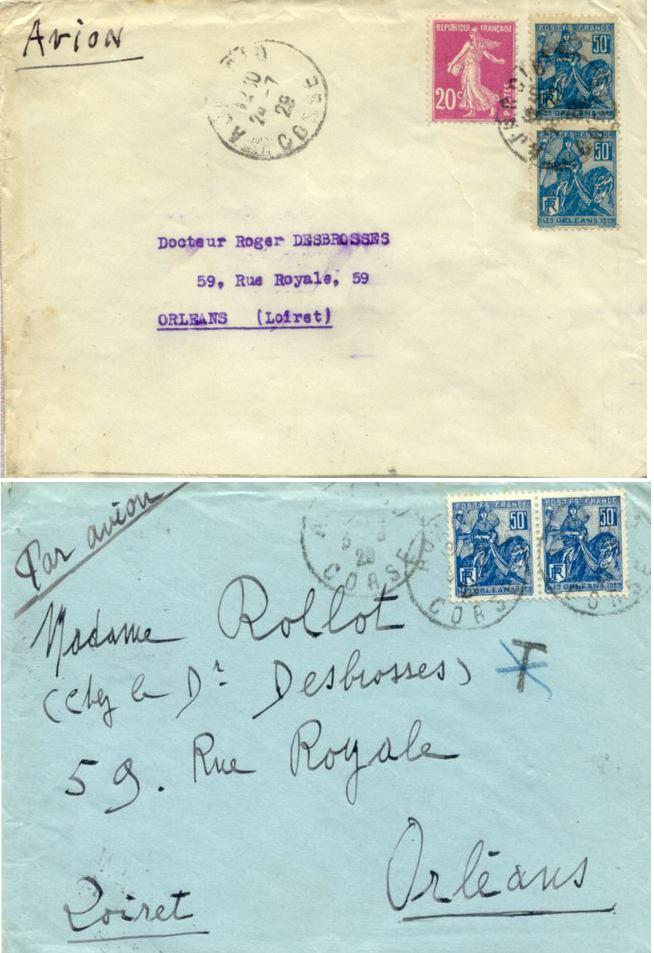 Avion
REPUBLIQUE FRANÇAISE
20c
POSTES
POSTES FRANCE
50c
RF
1429 ORLEANS 1929
POSTES FRANCE
50c
RF
1429 ORLEANS 1929
24-7
29
CORSE
Docteur Roger DESBROSSES
59, Rue Royale, 59
ORLEANS (Loiret)
Par avion
POSTES FRANCE
50c
RF
1429 ORLEANS 1929
POSTES FRANCE
50c
RF
1429 ORLEANS 1929
29
CORSE
CORSE
CORSE
Madame Rollot
(chez le Dr Desbrosses)
T
59. Rue Royale
Orléans
Loiret